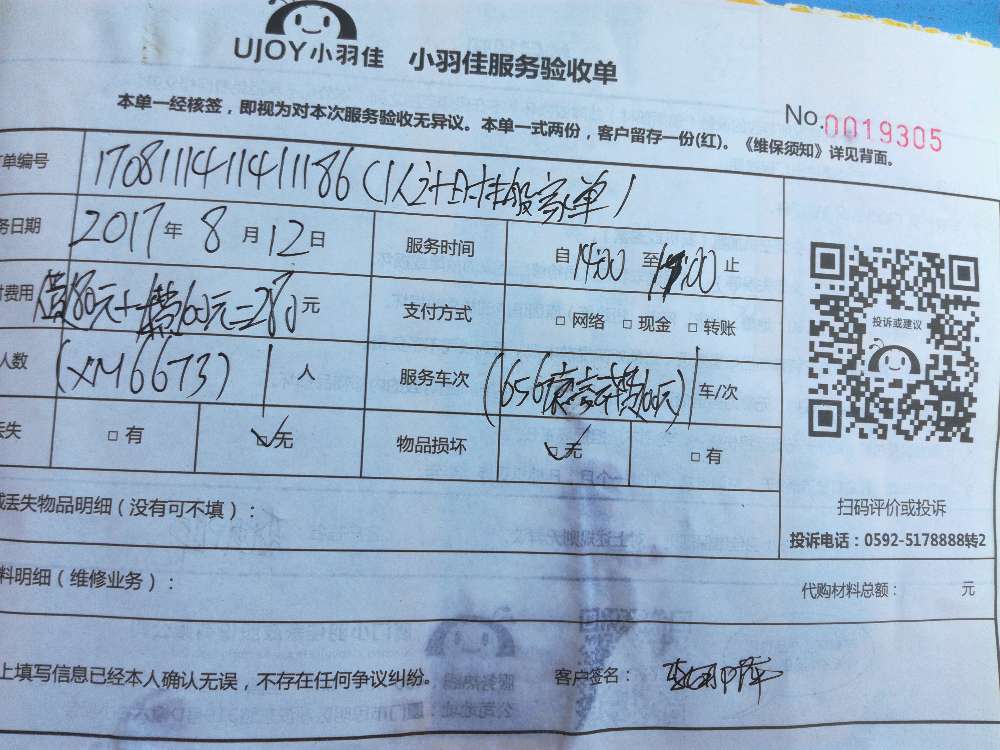 UJOY小羽佳 小羽佳服务验收单
本单一经核签，即视为对本次服务验收无异议。本单一式两份，客户留存一份(红)。《维保须知》详见背面。
No.0019305
单编号 170811141141186（1人计时
务日期 2017年8月12日 服务时间 自14:00至 :00止
费用 元 支付方式 □网络 □现金 □转账
人数 (XM6673) 1人 服务车次 车/次
丢失 □有 □无 物品损坏 □无 □有
投诉或建议
扫码评价或投诉
投诉电话：0592-5178888转2
丢失物品明细（没有可不填）：
料明细（维修业务）： 代购材料总额： 元
上填写信息已经本人确认无误，不存在任何争议纠纷。 客户签名：